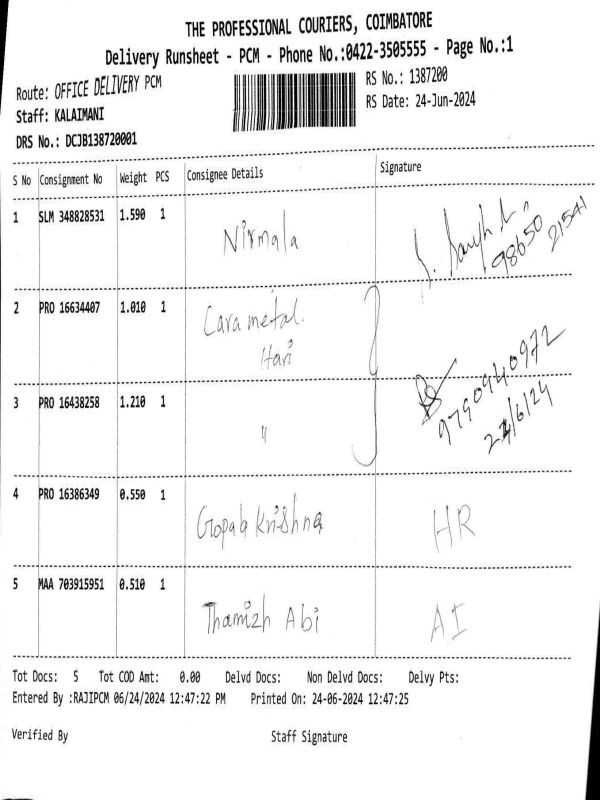 THE PROFESSIONAL COURIERS, COIMBATORE
Delivery Runsheet - PCM - Phone No.:0422-3505555 - Page No.:1
Route: OFFICE DELIVERY PCM
RS No.: 1387200
Staff: KALAIMANI
RS Date: 24-Jun-2024
DRS No.: DCJB138720001
S No Consignment No Weight PCS Consignee Details Signature
1 SLM 348828531 1.590 1 Nirmala
98650 21541
2 PRO 16634407 1.010 1 Cara metal.
Hari
9790940972
3 PRO 16438258 1.210 1 〃
24/6/24
4 PRO 16386349 0.550 1 Gopala Krishna HR
5 MAA 703915951 0.510 1 Thamizh Abi AI
Tot Docs: 5 Tot COD Amt: 0.00 Delvd Docs: Non Delvd Docs: Delvy Pts:
Entered By :RAJIPCM 06/24/2024 12:47:22 PM Printed On: 24-06-2024 12:47:25
Verified By Staff Signature